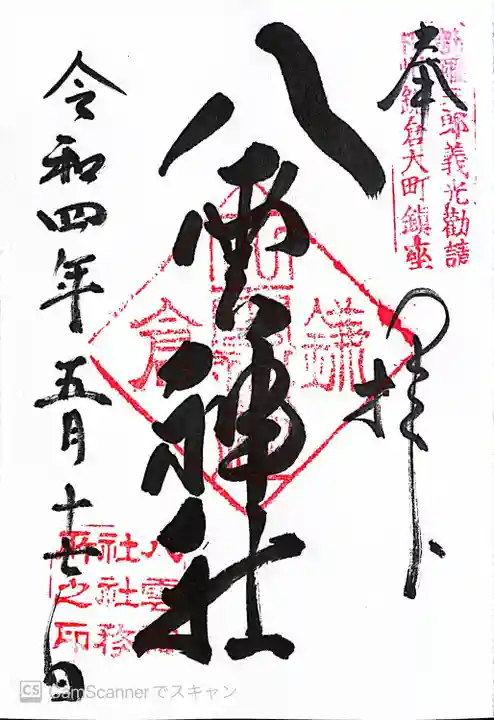 奉拝
新羅三郎義光勧請
相州鎌倉大町鎮座
八雲神社
鎌倉
令和四年五月十七日
八雲神社社務所之印
CS CamScannerでスキャン